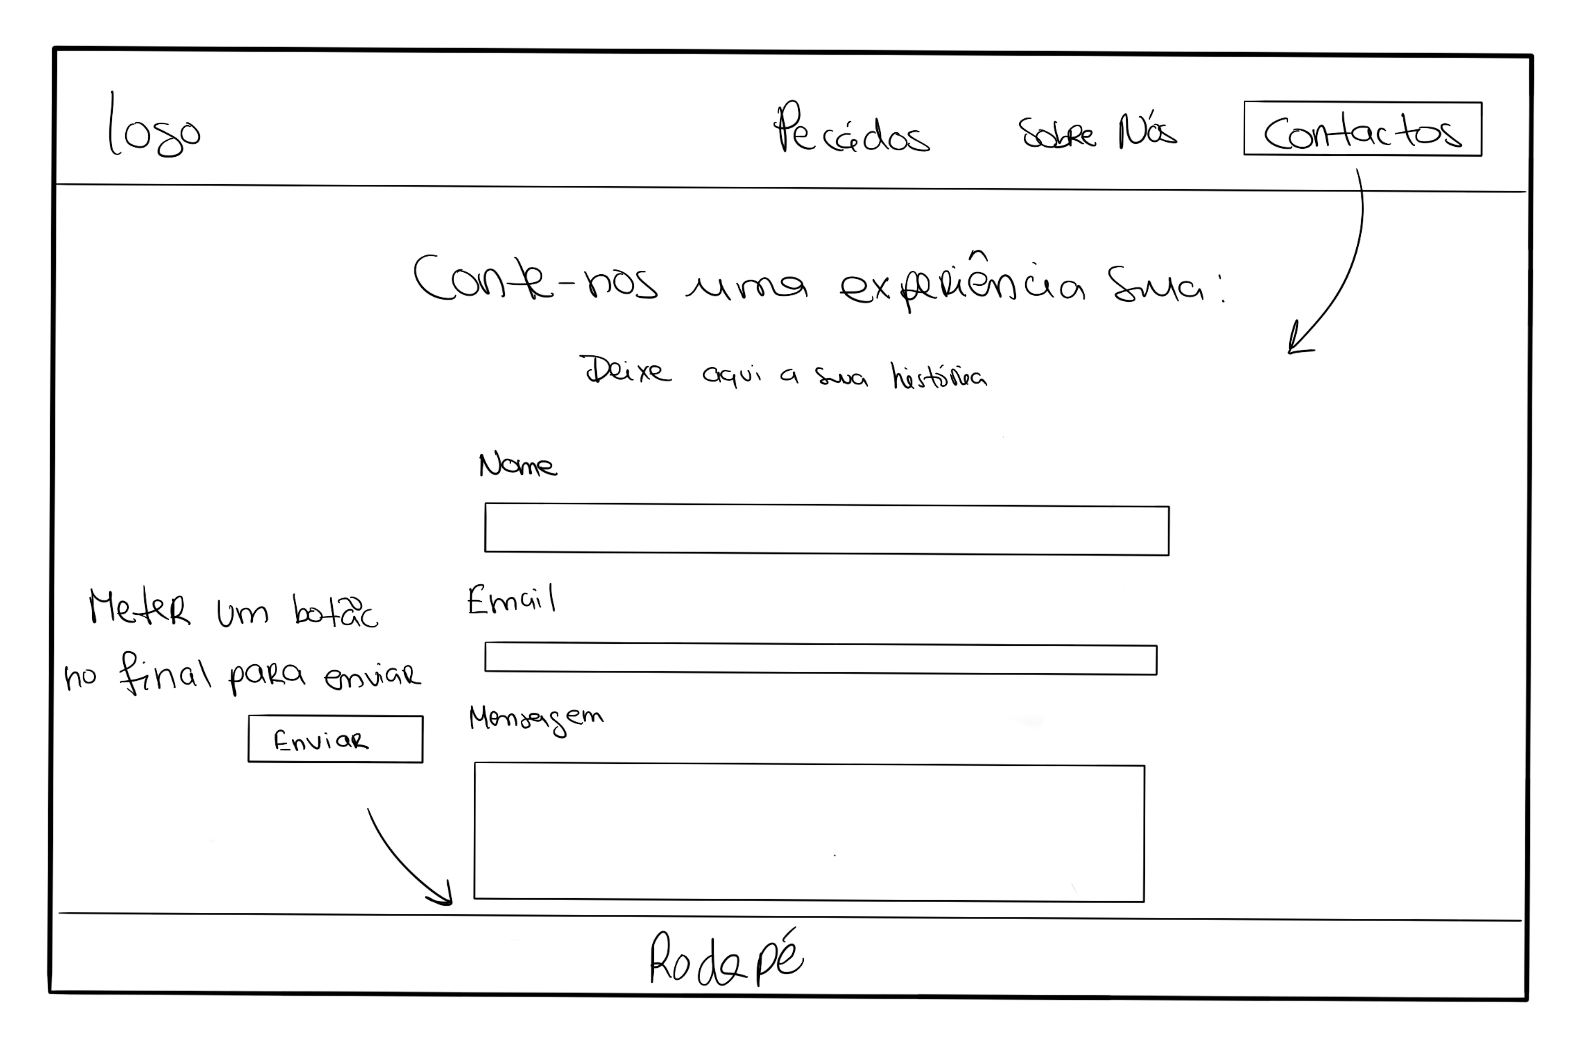 logo
Pecádos Sobre Nós Contactos
Conte-nos uma experiência sua:
Deixe aqui a sua história
Nome
Email
Meter um botão
no final para enviar
Enviar
Mensagem
Rodapé